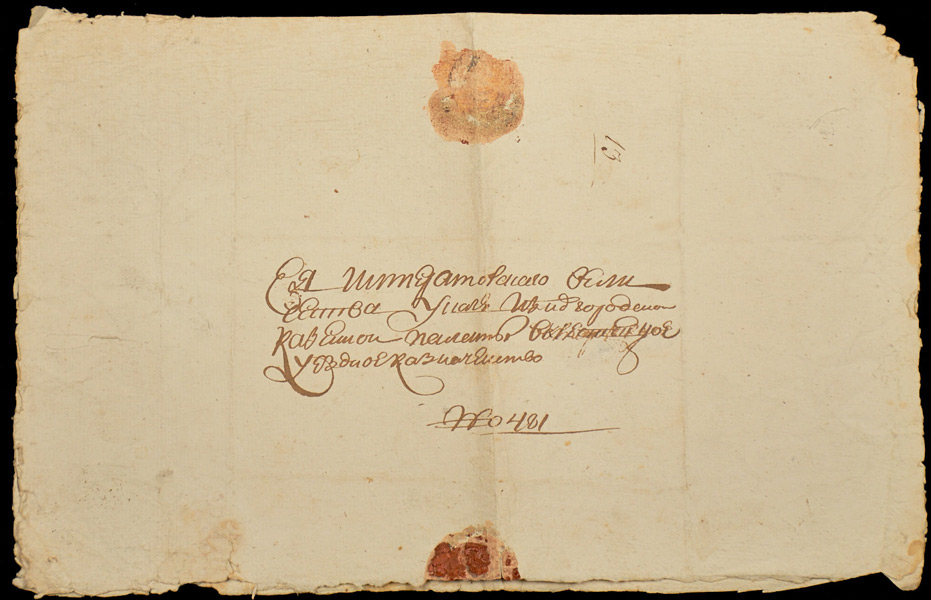 13
Ея Императорскаго вели
чества Указъ Нижегородской
казенной палаты въ
уездное казначейство
№ 481